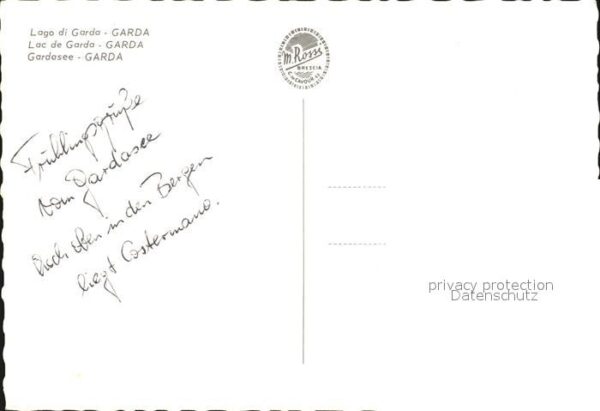 Lago di Garda - GARDA
Lac de Garda - GARDA
Gardasee - GARDA
M. Rossi
BRESCIA
C. so CAVOUR
Frühlingsgrüße
vom Gardasee
oben in den Bergen
liegt Costermano.
privacy protection
Datenschutz